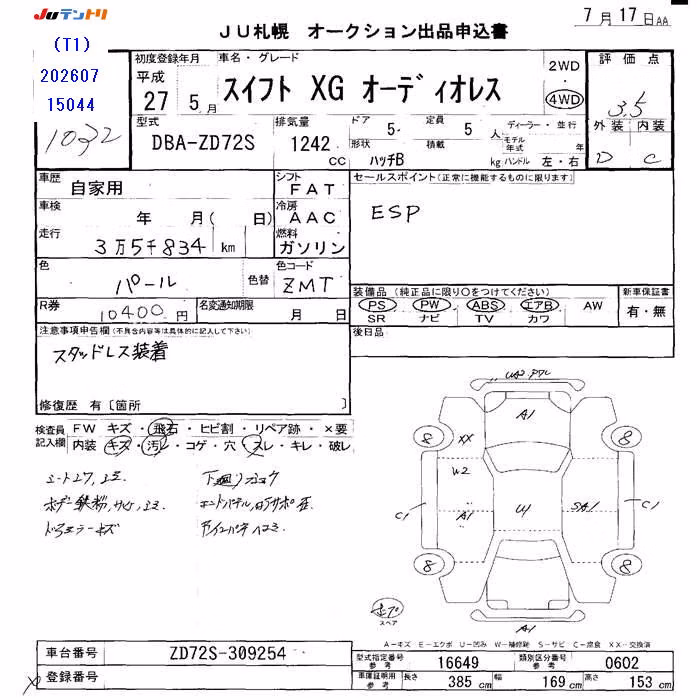 JUテントリ
JU札幌 オークション出品申込書
7月17日AA
(T1)
202607
15044
1032
初度登録年月
平成
27 5月
車名・グレード
スイフト XG オーディオレス
2WD
4WD
評価点
3.5
外装 内装
D C
型式
DBA-ZD72S
排気量
1242
cc
ドア 5
形状
ハッチB
定員 5 人
積載 kg
ディーラー・並行
モデル年式 年
ハンドル 左・右
車歴
自家用
シフト
FAT
車検
年 月( 日)
冷房
AAC
走行
3万5千834 km
燃料
ガソリン
色
パール
色替
色コード
ZMT
R券
10400円
名変通知期限
月 日
セールスポイント(正常に機能するものに限ります)
ESP
装備品 (純正品に限り○をつけてください)
PS PW ABS エアB AW
SR ナビ TV カワ
新車保証書
有・無
後日品
注意事項申告欄(不具合内容等は具体的に記入して下さい)
スタッドレス装着
修復歴 有〔箇所 〕
検査員記入欄
FW キズ・飛石・ヒビ割・リペア跡・×要
内装 キズ・汚レ・コゲ・穴・スレ・キレ・破レ
A1
8 XX 8
W2
C1 A1 U1 SA1 C1
8 8
スペア
A1
A-キズ E-エクボ U-凹み W-補修跡 S-サビ C-腐食 XX-交換済
車台番号
ZD72S-309254
登録番号
型式指定番号
参考
16649
類別区分番号
参考
0602
車庫証明用
参考
長さ 385 cm
幅 169 cm
高さ 153 cm